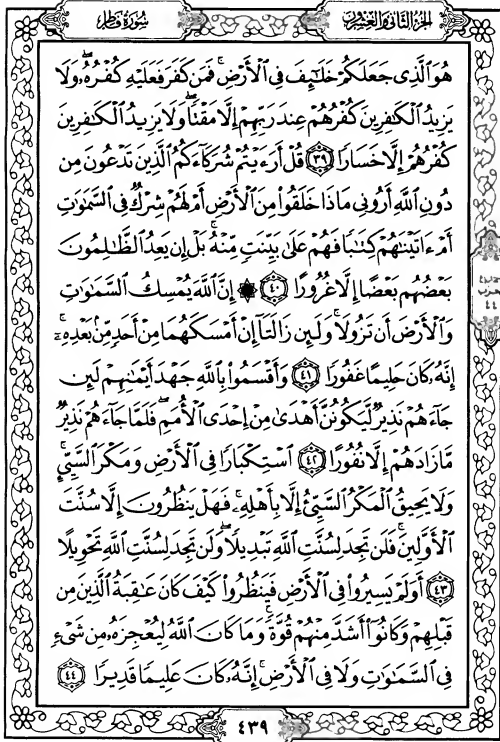 الجزء الثاني والعشرون
سورة فاطر
هُوَ ٱلَّذِي جَعَلَكُمْ خَلَٰٓئِفَ فِي ٱلْأَرْضِ ۚ فَمَن كَفَرَ فَعَلَيْهِ كُفْرُهُۥ ۖ وَلَا
يَزِيدُ ٱلْكَٰفِرِينَ كُفْرُهُمْ عِندَ رَبِّهِمْ إِلَّا مَقْتًا ۖ وَلَا يَزِيدُ ٱلْكَٰفِرِينَ
كُفْرُهُمْ إِلَّا خَسَارًا ٣٩ قُلْ أَرَءَيْتُمْ شُرَكَآءَكُمُ ٱلَّذِينَ تَدْعُونَ مِن
دُونِ ٱللَّهِ أَرُونِي مَاذَا خَلَقُوا۟ مِنَ ٱلْأَرْضِ أَمْ لَهُمْ شِرْكٌ فِي ٱلسَّمَٰوَٰتِ
أَمْ ءَاتَيْنَٰهُمْ كِتَٰبًا فَهُمْ عَلَىٰ بَيِّنَتٍ مِّنْهُ ۚ بَلْ إِن يَعِدُ ٱلظَّٰلِمُونَ
بَعْضُهُم بَعْضًا إِلَّا غُرُورًا ٤٠ ۞ إِنَّ ٱللَّهَ يُمْسِكُ ٱلسَّمَٰوَٰتِ
وَٱلْأَرْضَ أَن تَزُولَا ۚ وَلَئِن زَالَتَآ إِنْ أَمْسَكَهُمَا مِنْ أَحَدٍ مِّنۢ بَعْدِهِۦٓ ۚ
إِنَّهُۥ كَانَ حَلِيمًا غَفُورًا ٤١ وَأَقْسَمُوا۟ بِٱللَّهِ جَهْدَ أَيْمَٰنِهِمْ لَئِن
جَآءَهُمْ نَذِيرٌ لَّيَكُونُنَّ أَهْدَىٰ مِنْ إِحْدَى ٱلْأُمَمِ ۖ فَلَمَّا جَآءَهُمْ نَذِيرٌ
مَّا زَادَهُمْ إِلَّا نُفُورًا ٤٢ ٱسْتِكْبَارًا فِي ٱلْأَرْضِ وَمَكْرَ ٱلسَّيِّئِ ۚ
وَلَا يَحِيقُ ٱلْمَكْرُ ٱلسَّيِّئُ إِلَّا بِأَهْلِهِۦ ۚ فَهَلْ يَنظُرُونَ إِلَّا سُنَّتَ
ٱلْأَوَّلِينَ ۚ فَلَن تَجِدَ لِسُنَّتِ ٱللَّهِ تَبْدِيلًا ۖ وَلَن تَجِدَ لِسُنَّتِ ٱللَّهِ تَحْوِيلًا
٤٣ أَوَلَمْ يَسِيرُوا۟ فِي ٱلْأَرْضِ فَيَنظُرُوا۟ كَيْفَ كَانَ عَٰقِبَةُ ٱلَّذِينَ مِن
قَبْلِهِمْ وَكَانُوٓا۟ أَشَدَّ مِنْهُمْ قُوَّةً ۚ وَمَا كَانَ ٱللَّهُ لِيُعْجِزَهُۥ مِن شَيْءٍ
فِي ٱلسَّمَٰوَٰتِ وَلَا فِي ٱلْأَرْضِ ۚ إِنَّهُۥ كَانَ عَلِيمًا قَدِيرًا ٤٤
٤٣٩